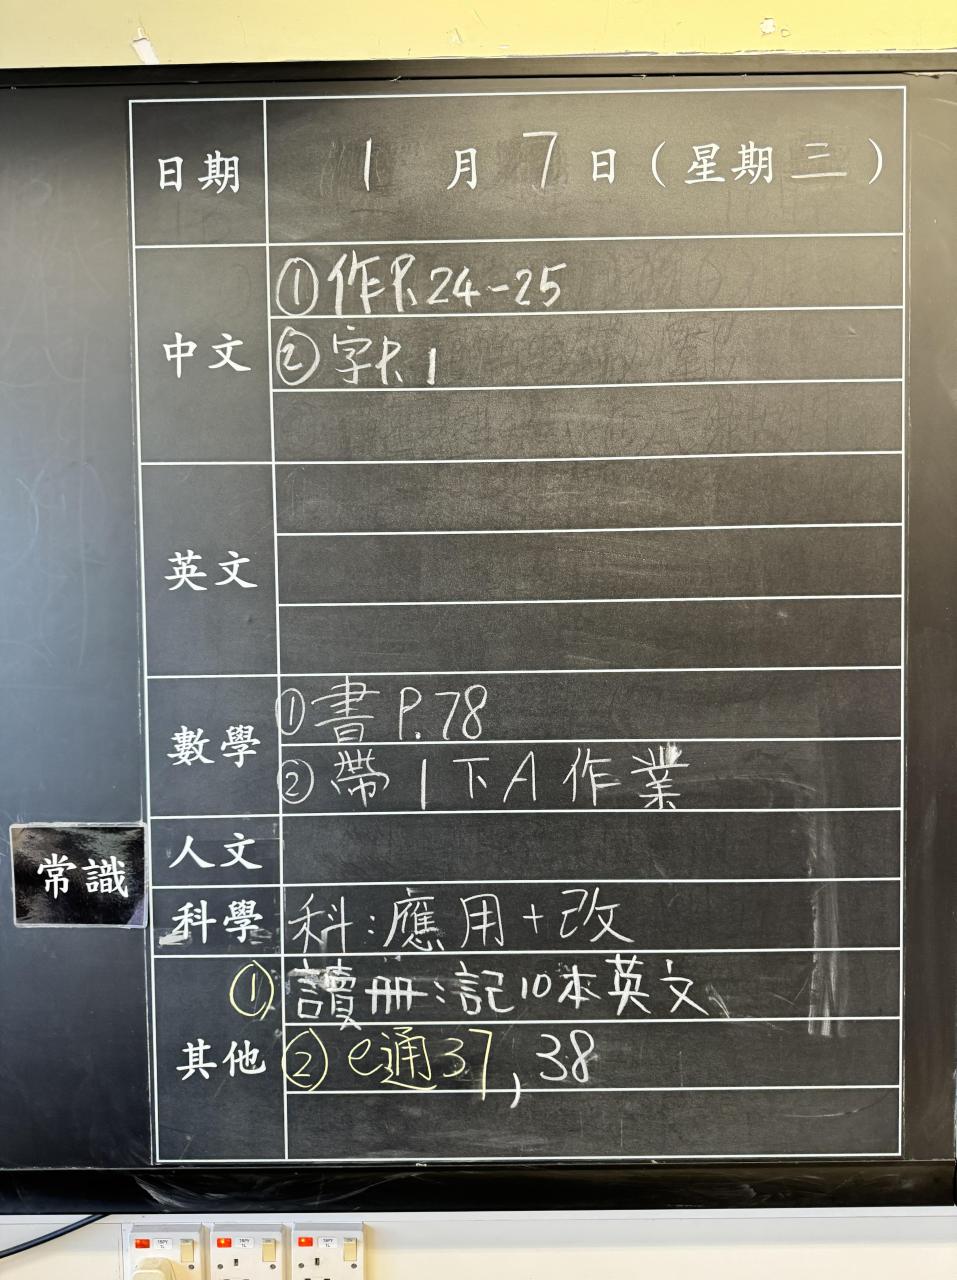 日期 1 月 7 日 ( 星期 三 )
中文 ① 作P.24-25
② 字P.1
英文
數學 ① 書 P.78
② 帶 1 下 A 作業
人文
常識
科學 科:應用+改
其他 ① 讀冊:記10本英文
② e通37,38